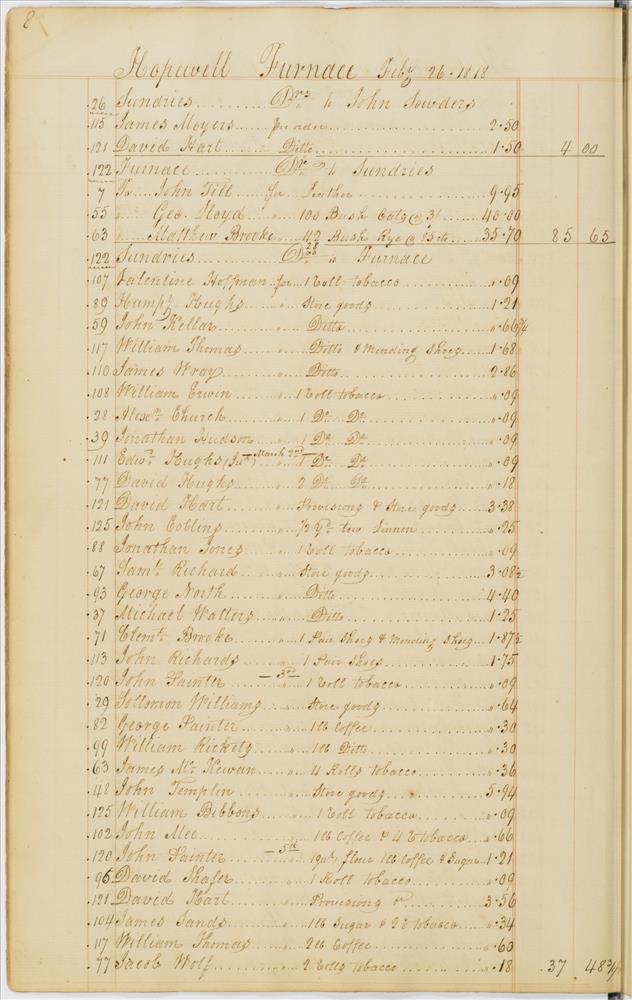 8
Hopewell Furnace Feby 26. 1818
26 Sundries Drs to John Sowders
115 James Moyers pr order 2.50
121 David Hart Ditto 1.50 4 00
122 Furnace Dr to Sundries
7 To John Till for Leather 9.95
55 " Geo. Lloyd " 100 Bush Coals @ 3/ 40.00
63 " Matthew Brooke 42 Bush Rye @ 85 cts 35.70 85 65
28
122 Sundries Drs to Furnace
107 Valentine Hoffman for 1 Roll tobacco ".09
89 Humpy Hughs " Store goods 1.21
59 John Kellar " Ditto ".66¾
117 William Thomas " Ditto & Mending Shoes 1.68
110 James Wray " Ditto 2.86
108 William Erwin 1 Roll tobacco ".09
28 Alexr Church " 1 Do Do ".09
39 Jonathan Hudson " 1 Do Do ".09
March 2nd
111 Edwd Hughs (Junr) " 1 Do Do ".09
77 David Hughs " 2 Do Do ".18
121 David Hart " Provisions & Store goods 3.38
125 John Collins " ½ Yd tow Linnen ".25
88 Jonathan Jones " 1 Roll tobacco ".09
67 Saml Richard " Store goods 3.08½
93 George North " Ditto 4.40
37 Michael Walters " Ditto 1.25
71 Clemt Brooke " 1 Pair Shoes & Mending Shoes 1.87½
113 John Richards " 1 Pair Shoes 1.75
3rd
120 John Painter " 1 Roll tobacco ".09
29 Sollomon Williams " Store goods ".64
82 George Painter " 1 lb Coffee ".30
99 William Rickols " 1 lb Ditto ".30
63 James Mc Kewan " 4 Rolls tobacco ".36
48 John Templin " Store goods 5.94
125 William Bibbons " 1 Roll tobacco ".09
102 John Mee " 1 lb Coffee & 4 R tobacco ".66
5th
120 John Painter " 1 qur flour 1 lb Coffee & Sugar 1.21
96 David Shafer " 1 Roll tobacco ".09
121 David Hart " Provisions & 3.56
104 James Sands " 1 lb Sugar & 2 R tobacco ".34
117 William Thomas " 2 lb Coffee ".60
77 Jacob Wolf " 2 Rolls tobacco ".18 37 48¾